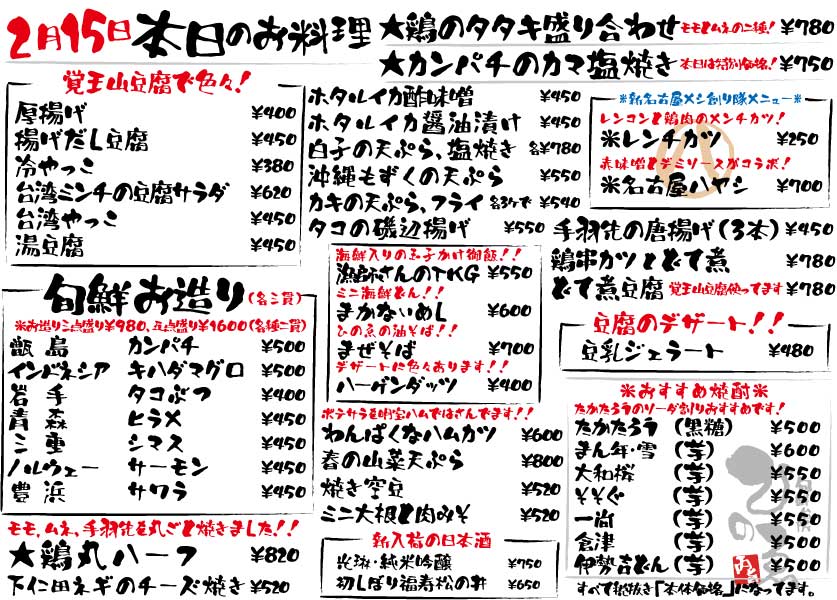 2月15日 本日のお料理
★鶏のタタキ盛り合わせ モモとムネの二種! ¥780
★カンパチのカマ塩焼き 本日は特別価格! ¥750
覚王山豆腐で色々!
厚揚げ ¥400
揚げだし豆腐 ¥450
冷やっこ ¥380
台湾ミンチの豆腐サラダ ¥620
台湾やっこ ¥450
湯豆腐 ¥450
旬鮮お造り (各二貫)
※お造り三点盛り¥980、五点盛り¥1600(各種二貫)
甑島 カンパチ ¥500
インドネシア キハダマグロ ¥500
岩手 タコぶつ ¥400
青森 ヒラメ ¥450
三重 シマス ¥450
ノルウェー サーモン ¥450
豊浜 サワラ ¥450
モモ、ムネ、手羽先を丸ごと焼きました!!
★鶏丸ハーフ ¥820
下仁田ネギのチーズ焼き ¥520
ホタルイカ酢味噌 ¥450
ホタルイカ醤油漬け ¥450
白子の天ぷら、塩焼き 各¥780
沖縄もずくの天ぷら ¥550
カキの天ぷら、フライ 各3ケで ¥540
タコの磯辺揚げ ¥550
海鮮入りの玉子かけ御飯!!
漁師さんのTKG ¥550
ミニ海鮮どん!!
まかないめし ¥600
ひの魚の油そば!!
まぜそば ¥700
デザートに色々あります!!
ハーゲンダッツ ¥400
ポテサラを明宝ハムではさんでます!!
わんぱくなハムカツ ¥600
春の山菜天ぷら ¥800
焼き空豆 ¥520
ミニ大根と肉みそ ¥520
新入荷の日本酒
純米吟醸 ¥750
初しぼり福寿松の井 ¥650
※新名古屋メシ創り隊メニュー※
レンコンと鶏肉のメンチカツ!
※レンチカツ ¥250
赤味噌とデミソースがコラボ!
※名古屋ハヤシ ¥700
手羽先の唐揚げ(3本) ¥450
鶏串カツとどて煮 ¥780
どて煮豆腐 覚王山豆腐使ってます ¥780
豆腐のデザート!!
豆乳ジェラート ¥480
※おすすめ焼酎※
たかたろうのソーダ割りおすすめです!
たかたろう (黒糖) ¥500
まん年・雪 (芋) ¥600
大和桜 (芋) ¥550
そそぐ (芋) ¥550
一尚 (芋) ¥550
倉津 (芋) ¥500
伊勢吉どん (芋) ¥550
すべて税抜き「本体価格」になってます。